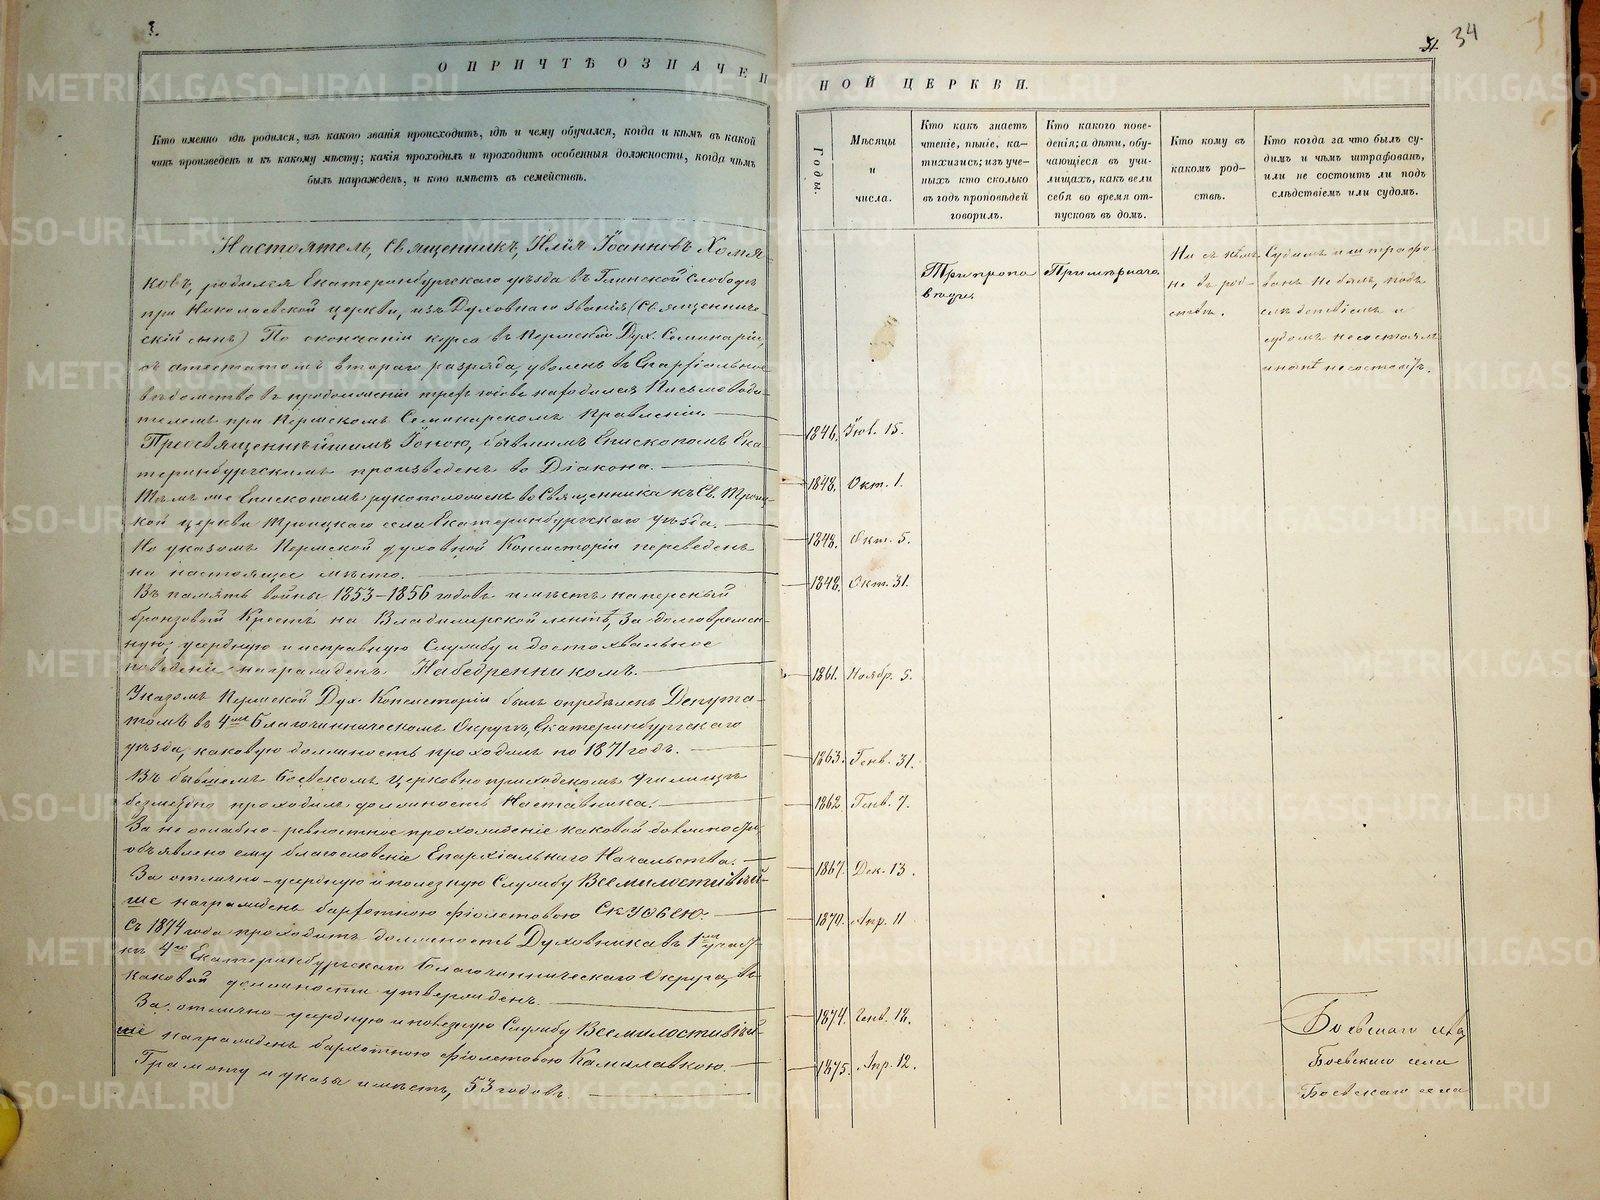 34
О ПРИЧТѢ ОЗНАЧЕННОЙ ЦЕРКВИ.
Кто именно гдѣ родился, изъ какого званія происходитъ, гдѣ и чему обучался, когда и кѣмъ въ какой
чинъ произведенъ и къ какому мѣсту; какія проходилъ и проходитъ особенныя должности, когда чѣмъ
былъ награжденъ, и кого имѣетъ въ семействѣ.
Годы.
Мѣсяцы
и
числа.
Кто какъ знаетъ
чтеніе, пѣніе, ка-
тихизисъ; изъ уче-
ныхъ кто сколько
въ годъ проповѣдей
говорилъ.
Кто какого пове-
денія; а дѣти, обу-
чающіеся въ учи-
лищахъ, какъ вели
себя во время от-
пусковъ въ домъ.
Кто кому въ
какомъ род-
ствѣ.
Кто когда за что былъ су-
димъ и чѣмъ штрафованъ,
или не состоитъ ли подъ
слѣдствіемъ или судомъ.
Настоятель, Священникъ, Илія Іоанновъ Хомя-
ковъ, родился Екатеринбургскаго уѣзда въ Глинской Слободѣ
при Николаевской церкви, изъ Духовнаго званія (Священниче-
скій сынъ) По окончаніи курса въ Пермской Дух. Семинаріи,
съ аттестатомъ втораго разряда, уволенъ въ Епархіальное
вѣдомство въ продолженіи трехъ годовъ находился Письмоводи-
телемъ при Пермскомъ Семинарскомъ Правленіи.
1846. Іюл. 15.
Преосвященнѣйшимъ Іоною, бывшимъ Епископомъ Ека-
теринбургскимъ произведенъ во Діакона.
1848. Окт. 1.
Тѣмъ же Епископомъ рукоположенъ во Священника къ Св. Троиц-
кой церкви Троицкаго села Екатеринбургскаго уѣзда.
1848. Окт. 5.
По указомъ Пермской Духовной Консисторіи переведенъ
на настоящее мѣсто.
1848. Окт. 31.
Въ память войны 1853-1856 годовъ имѣетъ наперсный
бронзовый Крестъ на Владимирской лентѣ, За долговремен-
ную, усердную и исправную Службу и достохвальное
поведеніе награжденъ Набедренникомъ.
1861. Ноябр. 5.
Указомъ Пермской Дух. Консисторіи былъ опредѣленъ Депута-
томъ въ 4мъ Благочинническомъ Округѣ, Екатеринбургскаго
уѣзда, каковую должность проходилъ по 1871 годъ.
1863. Генв. 31.
Въ бывшемъ Боевскомъ Церковноприходскомъ Училищѣ
безмездно проходилъ должность Наставника.
1862 Генв. 7.
За не ослабно-ревностное прохожденіе каковой должности
объявлено ему благословеніе Епархіальнаго Начальства.
1867. Дек. 13.
За отлично-усердную и полезную Службу Всемилостивѣй-
ше награжденъ бархатною фіолетовою Скуфьею.
1870. Апр. 11
Съ 1874 года проходитъ должность Духовника въ 1мъ участ-
кѣ 4го Екатеринбургскаго Благочинническаго Округа, въ
каковой должности утвержденъ.
1874. Генв. 18.
За отлично-усердную и полезную Службу Всемилостивѣй-
ше награжденъ бархатною фіолетовою Камилавкою.
1875. Апр. 12.
Грамоту и указы имѣетъ, 53 годовъ.
Три пропо
вѣди
Примѣрнаго
Ни съ кѣмъ
не въ род-
ствѣ.
Судимъ и штрафо-
ванъ не былъ, подъ
слѣдствіемъ и
судомъ не состоялъ
и нынѣ не состоитъ.
Боевскаго села
Боевскаго села
Боевскаго села
METRIKI.GASO-URAL.RU